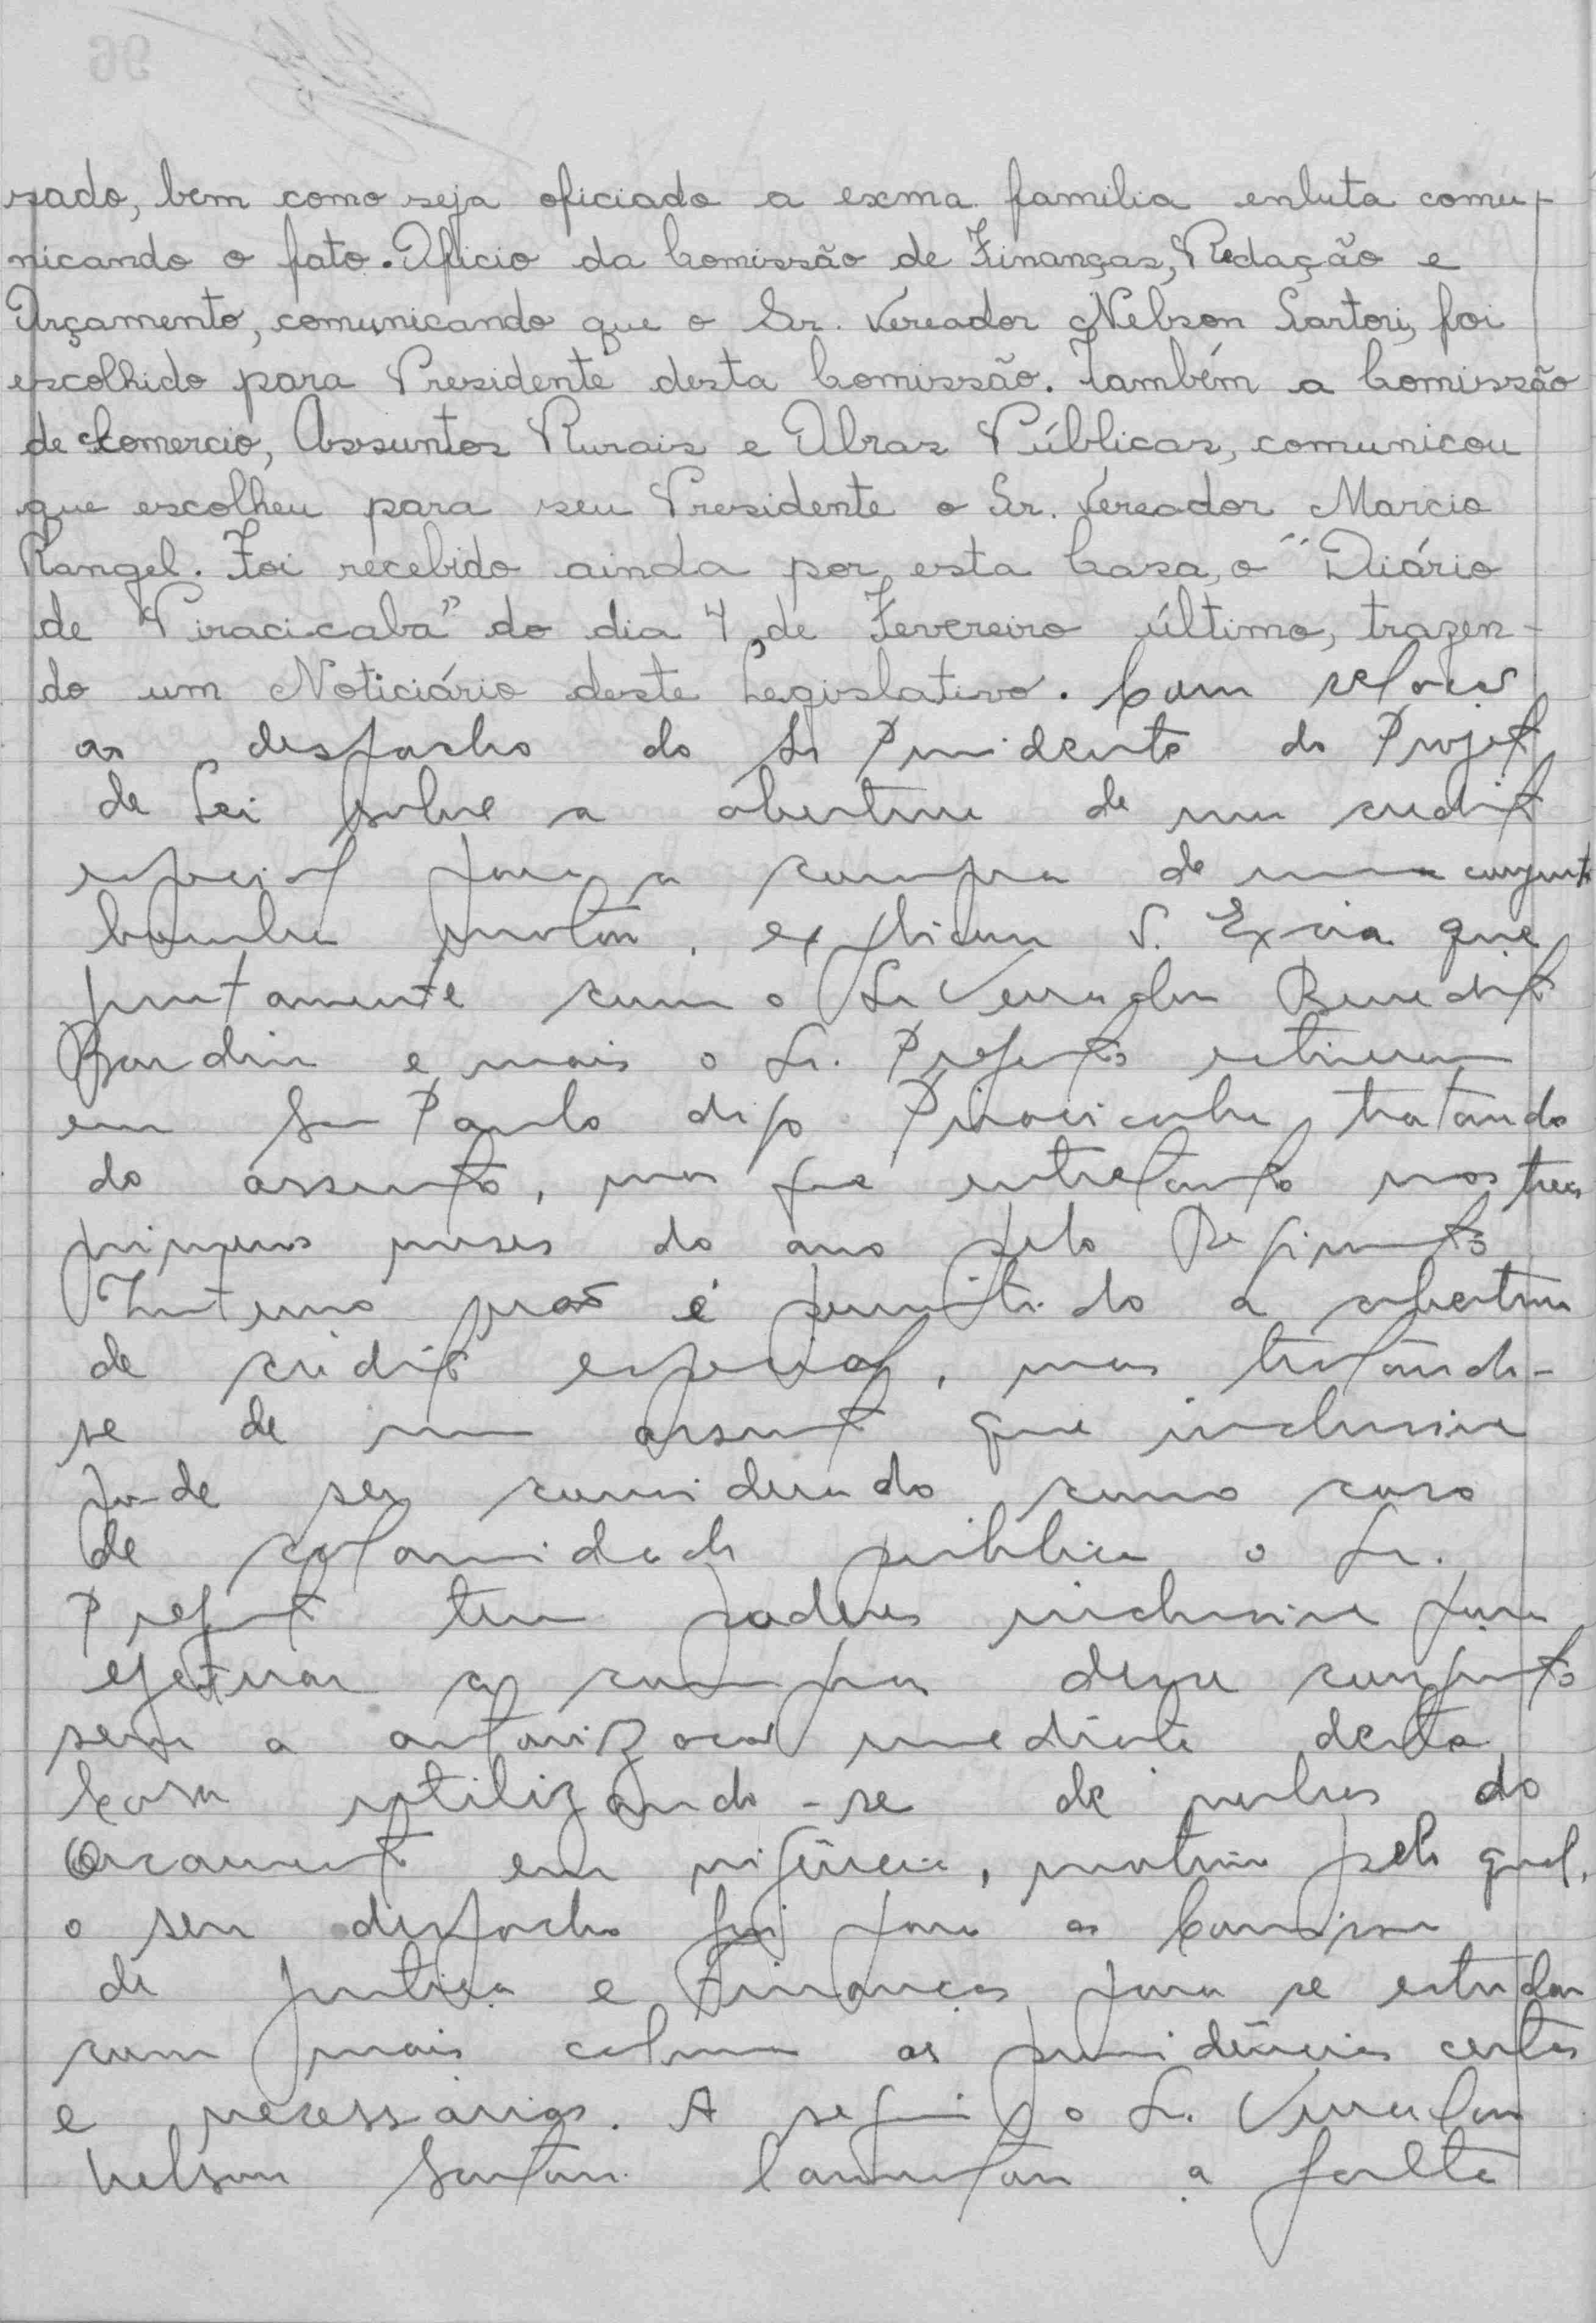 sado, bem como seja oficiado a exma. familia enluta comu-
nicando o fato. Oficio da Comissão de Finanças, Redação e
Orçamento, comunicando que o Sr. Vereador Nelson Sartori, foi
escolhido para Presidente desta Comissão. Também a Comissão
de Comercio, Assuntos Rurais e Obras Públicas, comunicou
que escolheu para seu Presidente o Sr. Vereador Marcio
Rangel. Foi recebido ainda por esta Casa, o "Diário
de Piracicaba" do dia 4, de Fevereiro último, trazen-
do um Noticiário deste Legislativo. Com relação
ao despacho do Sr Presidente do Projeto
de Lei sobre a abertura de um credito
especial para a compra de um conjunto
bomba motor, explicou S. Excia que
juntamente com o Sr Vereador Benedito
Bardin e mais o Sr. Prefeito estiveram
em São Paulo digo Piracicaba, tratando
do assunto, mas que entretanto nos tres
primeiros meses do ano pelo Regimento
Interno não é permitido a abertura
de credito especial, mas tratando-
se de um assunto que inclusive
pode ser considerado como caso
de calamidade publica o Sr.
Prefeito tem poderes inclusive para
efetuar a compra desse conjunto
sem a autorização mediante desta
Casa utilizando-se de verbas do
Orcamento em vigência, motivo pelo qual,
o seu despacho foi para as Comissões
de Justiça e Finanças para se estudar
com mais calma as providências certas
e necessarias. A seguir o Sr. Vereador
Nelson Sartori lamentou a falta